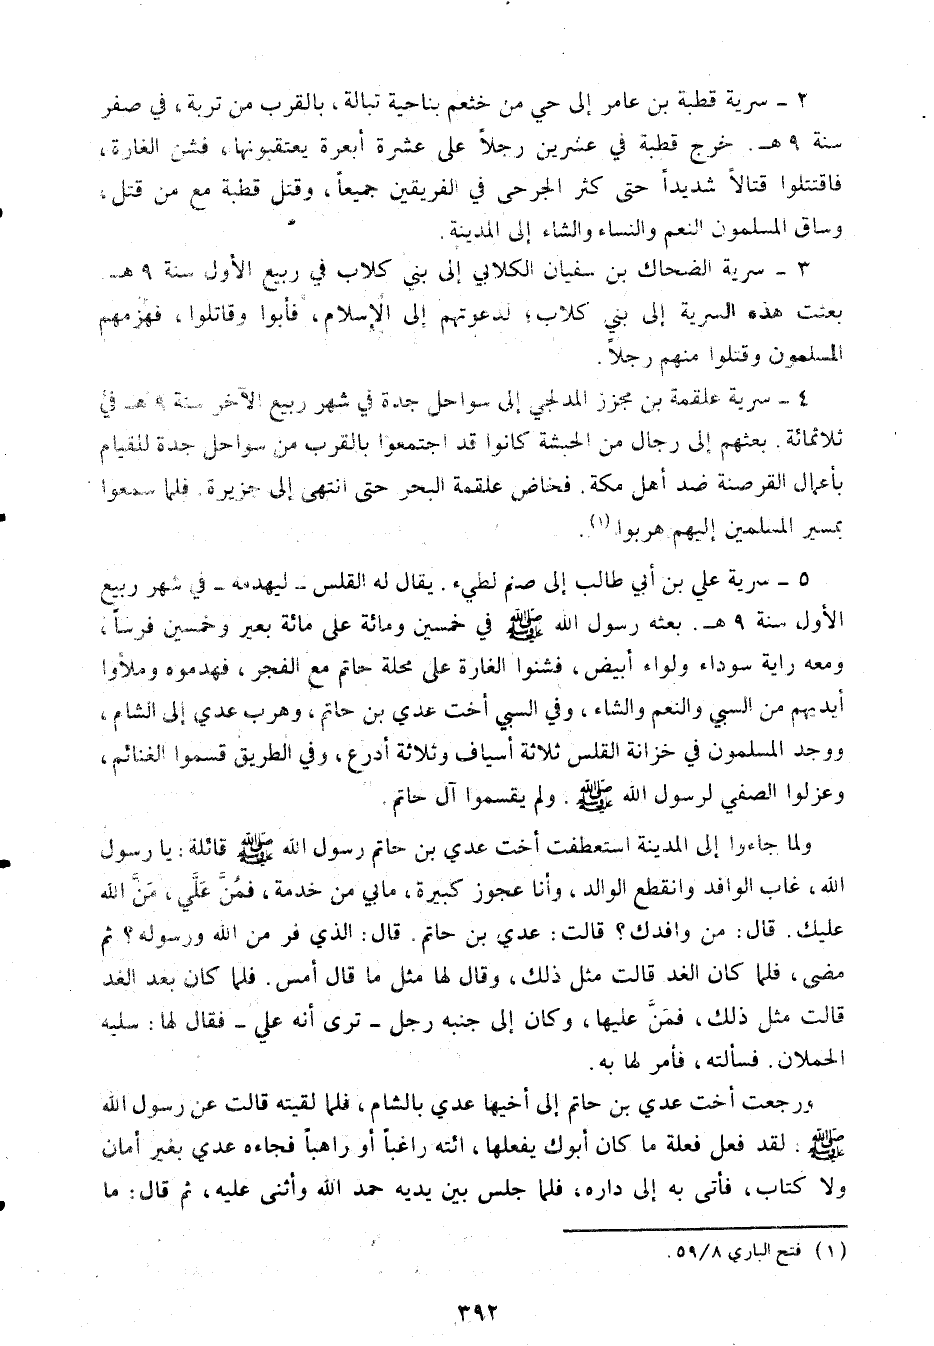 ٢ - سرية قطبة بن عامر إلى حي من خثعم بناحية تبالة، بالقرب من تربة، في صفر
سنة ٩ هـ. خرج قطبة في عشرين رجلاً على عشرة أبعرة يعتقبونها، فشن الغارة،
فاقتتلوا قتالاً شديداً حتى كثر الجرحى في الفريقين جميعاً، وقتل قطبة مع من قتل،
وساق المسلمون النعم والنساء والشاء إلى المدينة.
٣ - سرية الضحاك بن سفيان الكلابي إلى بني كلاب في ربيع الأول سنة ٩ هـ.
بعثت هذه السرية إلى بني كلاب؛ لدعوتهم إلى الإسلام، فأبوا وقاتلوا، فهزمهم
المسلمون وقتلوا منهم رجلاً.
٤ - سرية علقمة بن مجزز المدلجي إلى سواحل جدة في شهر ربيع الآخر سنة ٩ هـ في
ثلاثمائة. بعثهم إلى رجال من الحبشة كانوا قد اجتمعوا بالقرب من سواحل جدة للقيام
بأعمال القرصنة ضد أهل مكة. فخاض علقمة البحر حتى انتهى إلى جزيرة. فلما سمعوا
بمسير المسلمين إليهم هربوا(١).
٥ - سرية علي بن أبي طالب إلى صنم لطيء. يقال له القلس - ليهدمه - في شهر ربيع
الأول سنة ٩ هـ. بعثه رسول الله ﷺ في خمسين ومائة على مائة بعير وخمسين فرساً،
ومعه راية سوداء ولواء أبيض، فشنوا الغارة على محلة حاتم مع الفجر، فهدموه وملأوا
أيديهم من السبي والنعم والشاء، وفي السبي أخت عدي بن حاتم، وهرب عدي إلى الشام،
ووجد المسلمون في خزانة القلس ثلاثة أسياف وثلاثة أدرع، وفي الطريق قسموا الغنائم،
وعزلوا الصفي لرسول الله ﷺ. ولم يقسموا آل حاتم.
ولما جاءوا إلى المدينة استعطفت أخت عدي بن حاتم رسول الله ﷺ قائلة: يا رسول
الله، غاب الوافد وانقطع الوالد، وأنا عجوز كبيرة، مابي من خدمة، فمُنَّ عَلَّي، مَنَّ الله
عليك. قال: من وافدك؟ قالت: عدي بن حاتم. قال: الذي فر من الله ورسوله؟ ثم
مضى، فلما كان الغد قالت مثل ذلك، وقال لها مثل ما قال أمس. فلما كان بعد الغد
قالت مثل ذلك، فمَنَّ عليها، وكان إلى جنبه رجل - ترى أنه علي - فقال لها: سليه
الحملان. فسألته، فأمر لها به.
ورجعت أخت عدي بن حاتم إلى أخيها عدي بالشام، فلما لقيته قالت عن رسول الله
ﷺ: لقد فعل فعلة ما كان أبوك يفعلها، ائته راغباً أو راهباً فجاءه عدي بغير أمان
ولا كتاب، فأتى به إلى داره، فلما جلس بين يديه حمد الله وأثنى عليه، ثم قال: ما
(١) فتح الباري ٥٩/٨.
٣٩٢